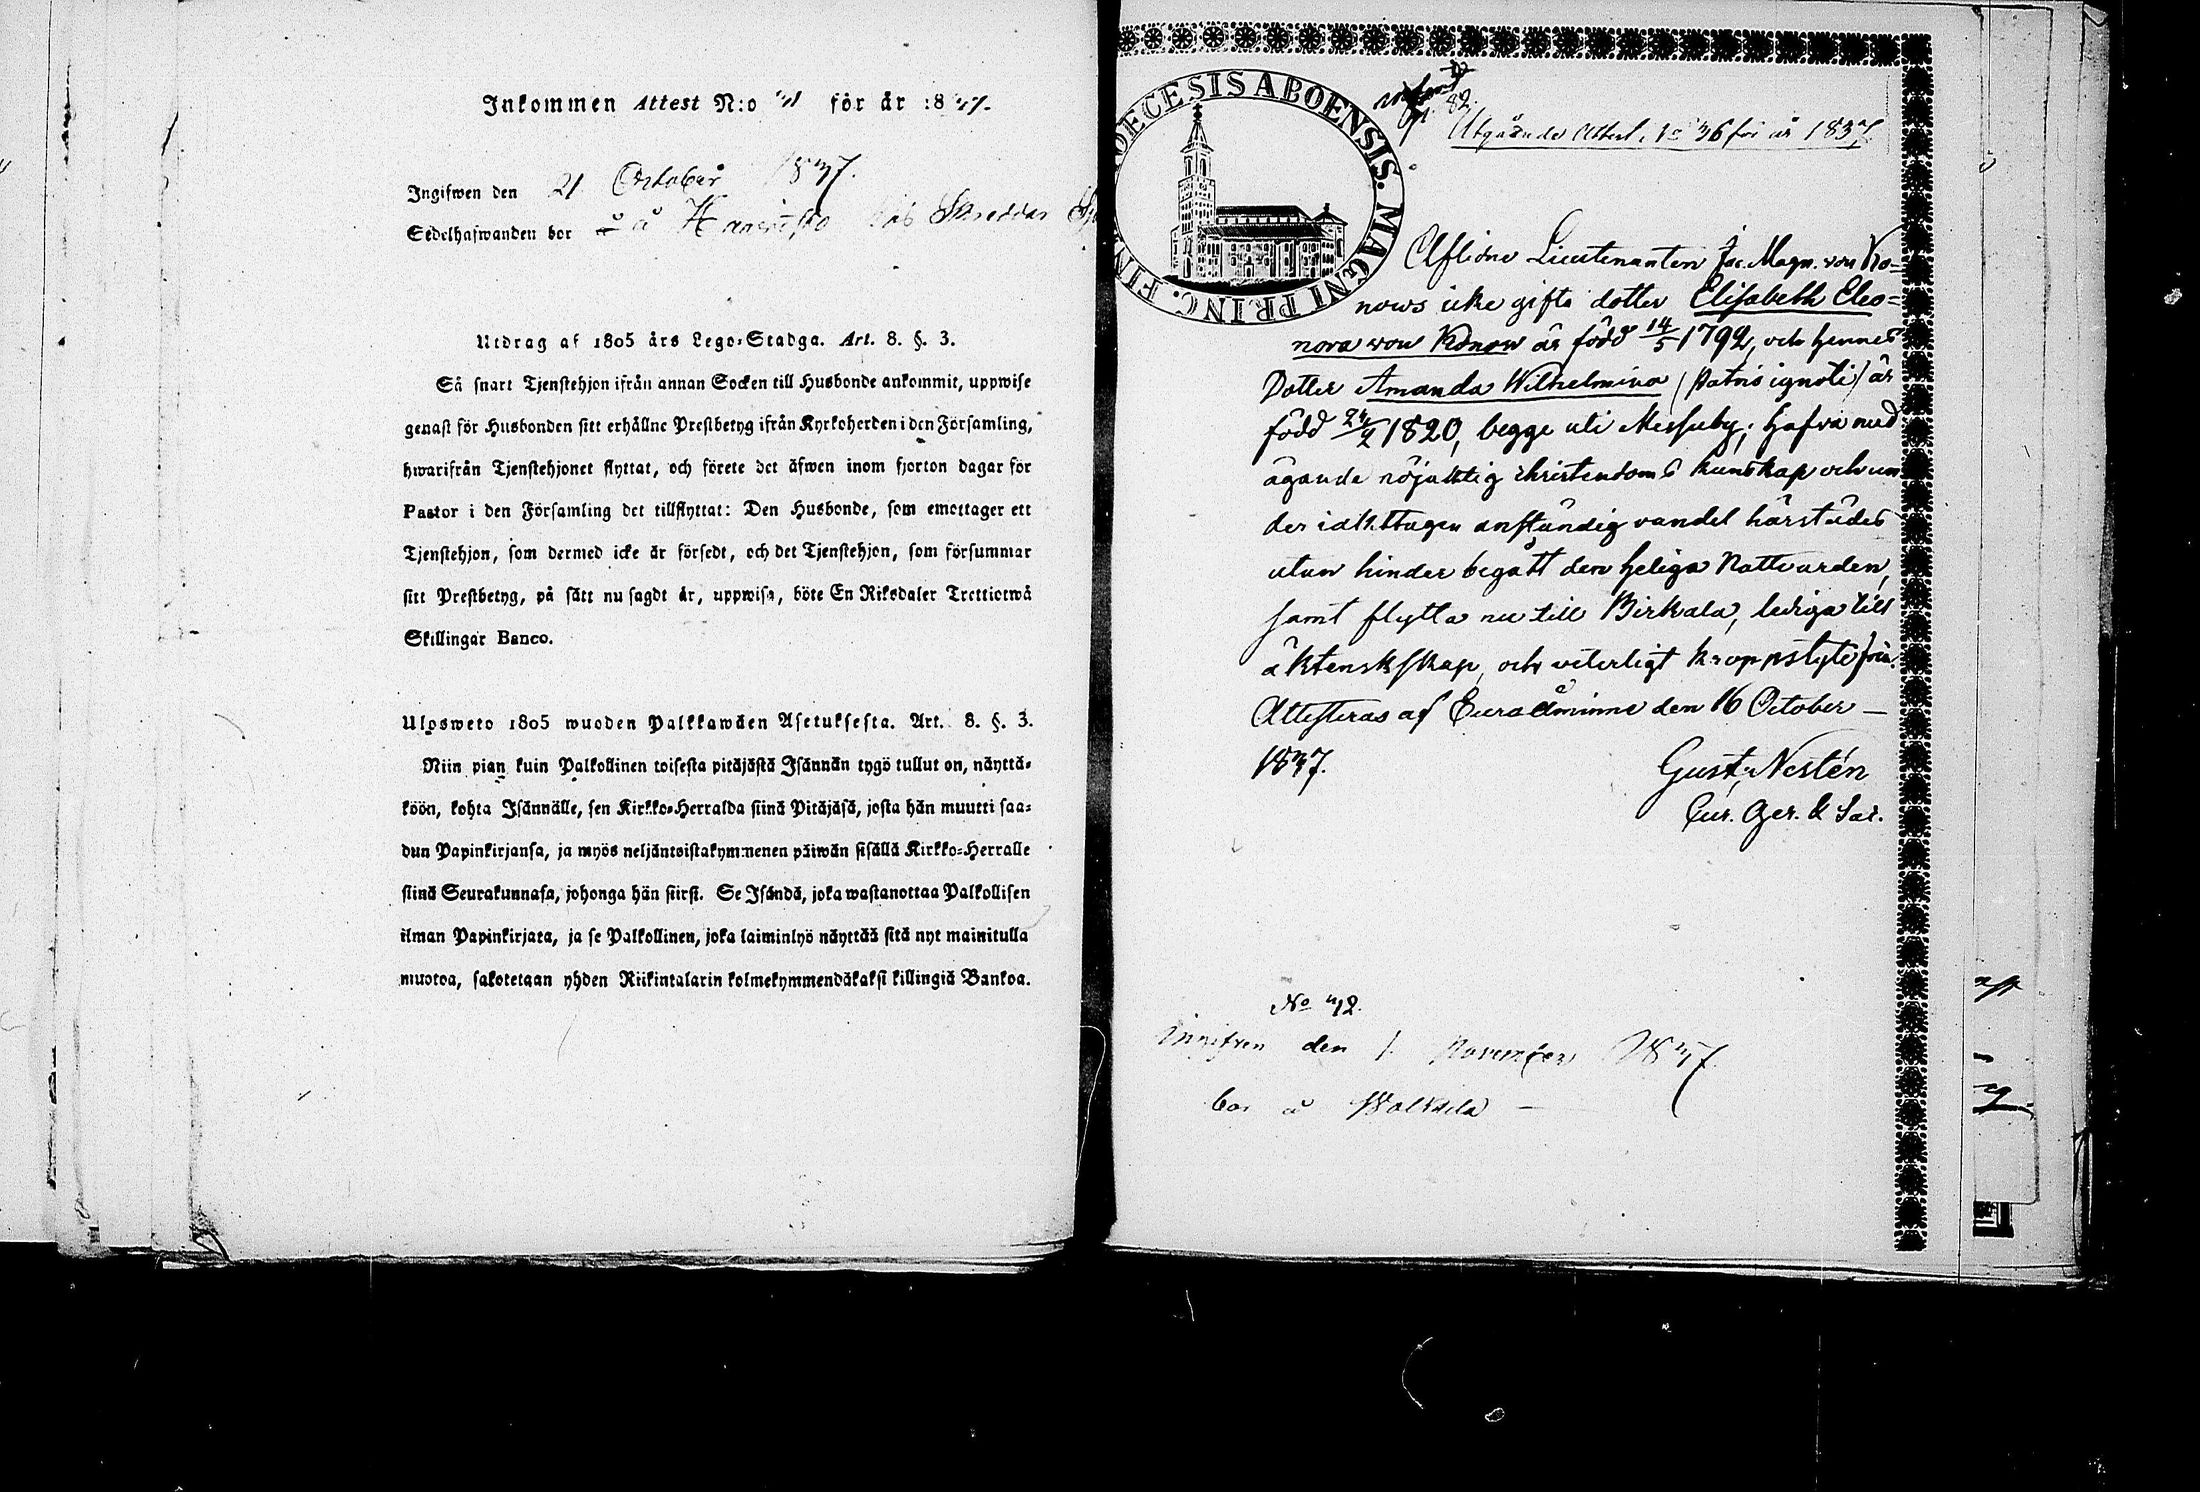 Inkommen Attest N:o 41 för år 1837.
Ingifwen den 21 October 1837.
Sedelhafwanden bor å Haavisto hos Skreddar
Utdrag af 1805 års Lego-Stadga. Art. 8. §. 3.
Så snart Tjenstehjon ifrån annan Socken till Husbonde ankommit, uppwise
genast för Husbonden sitt erhållne Prestbetyg ifrån Kyrkoherden i den Församling,
hwarifrån Tjenstehjonet flyttat, och förete det äfwen inom fjorton dagar för
Pastor i den Församling det tillflyttat: Den Husbonde, som emottager ett
Tjenstehjon, som dermed icke är försedt, och det Tjenstehjon, som försummar
sitt Prestbetyg, på sätt nu sagdt är, uppwisa, böte En Riksdaler Trettiotwå
Skillingar Banco.
Ulosweto 1805 wuoden Palkkawäen Asetuksesta. Art. 8. §. 3.
Niin pian kuin Palkollinen toisesta pitäjästä Isännän tygö tullut on, näyttä-
köön, kohta Isännälle, sen Kirkko-Herralda siinä Pitäjäsä, josta hän muutti saa-
dun Papinkirjansa, ja myös neljäntoistakymmenen päiwän sisällä Kirkko-Herralle
siinä Seurakunnasa, johonga hän siirsi. Se Isändä, joka wastanottaa Palkollisen
ilman Papinkirjata, ja se Palkollinen, joka laiminlyö näyttää sitä nyt mainitulla
muotoa, sakotetaan yhden Riikintalarin kolmekymmendäkaksi killingiä Bankoa.
DIOECESIS ABOENSIS. MAGNI PRINC. FIN
82.
Utgående Attest, No 36 för år 1837
Aflidne Lieutenanten Jac. Magn. von Ko-
nows icke gifta dotter Elisabeth Eleo-
nora von Konow är född 14/5 1792, och hennes
Dotter Amanda Wilhelmina (patris ignoti) är
född 24/2 1820, begge uti Messuby; hafva med
ägande nöjaktig christendoms kunskap och un
der iakttagen anständig vandel härstädes
utan hinder begått den heliga Nattvarden,
samt flytta nu till Birkala, lediga till
äktenskskap, och veterligt kroppslyte fria.
Attesteras af Euraåminne den 16 October —
1837.
Gust. Nestén
No 42.
Ingifven den 1. November 1837.
bor å